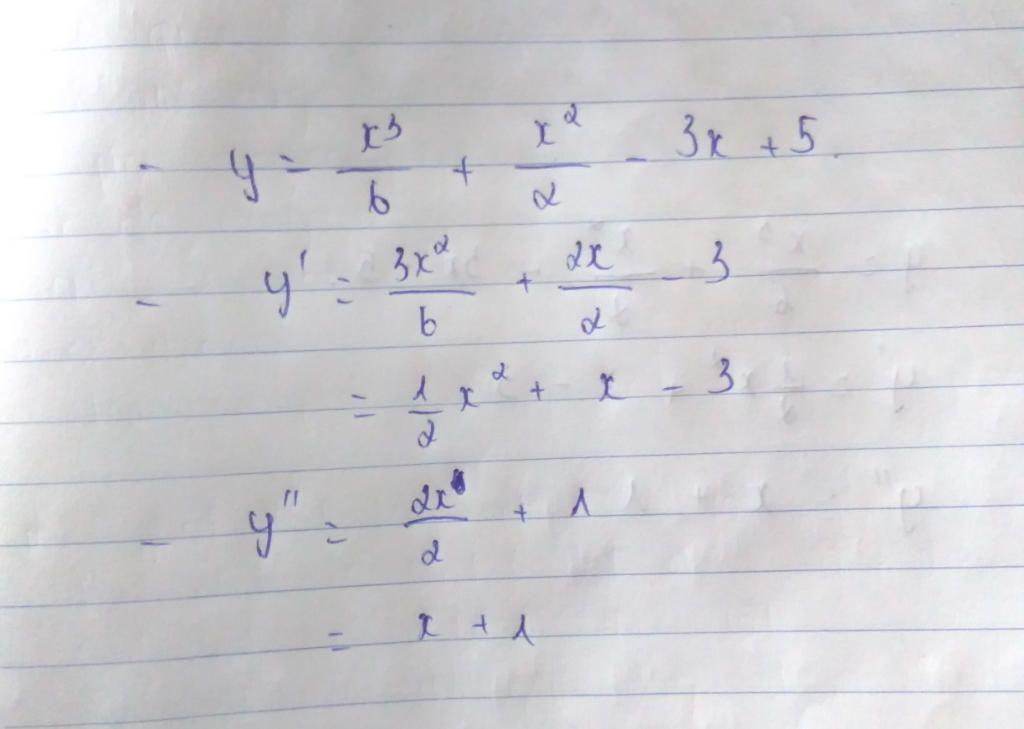 - y = x³/6 + x²/2 - 3x + 5.
- y' = 3x²/6 + 2x/2 - 3
= 1/2 x² + x - 3
- y'' = 2x/2 + 1
= x + 1